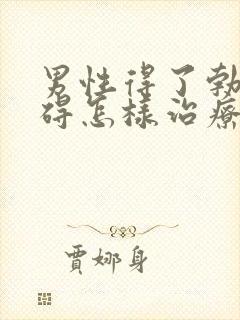 男性得了勃
碍怎样治療
賈娜身